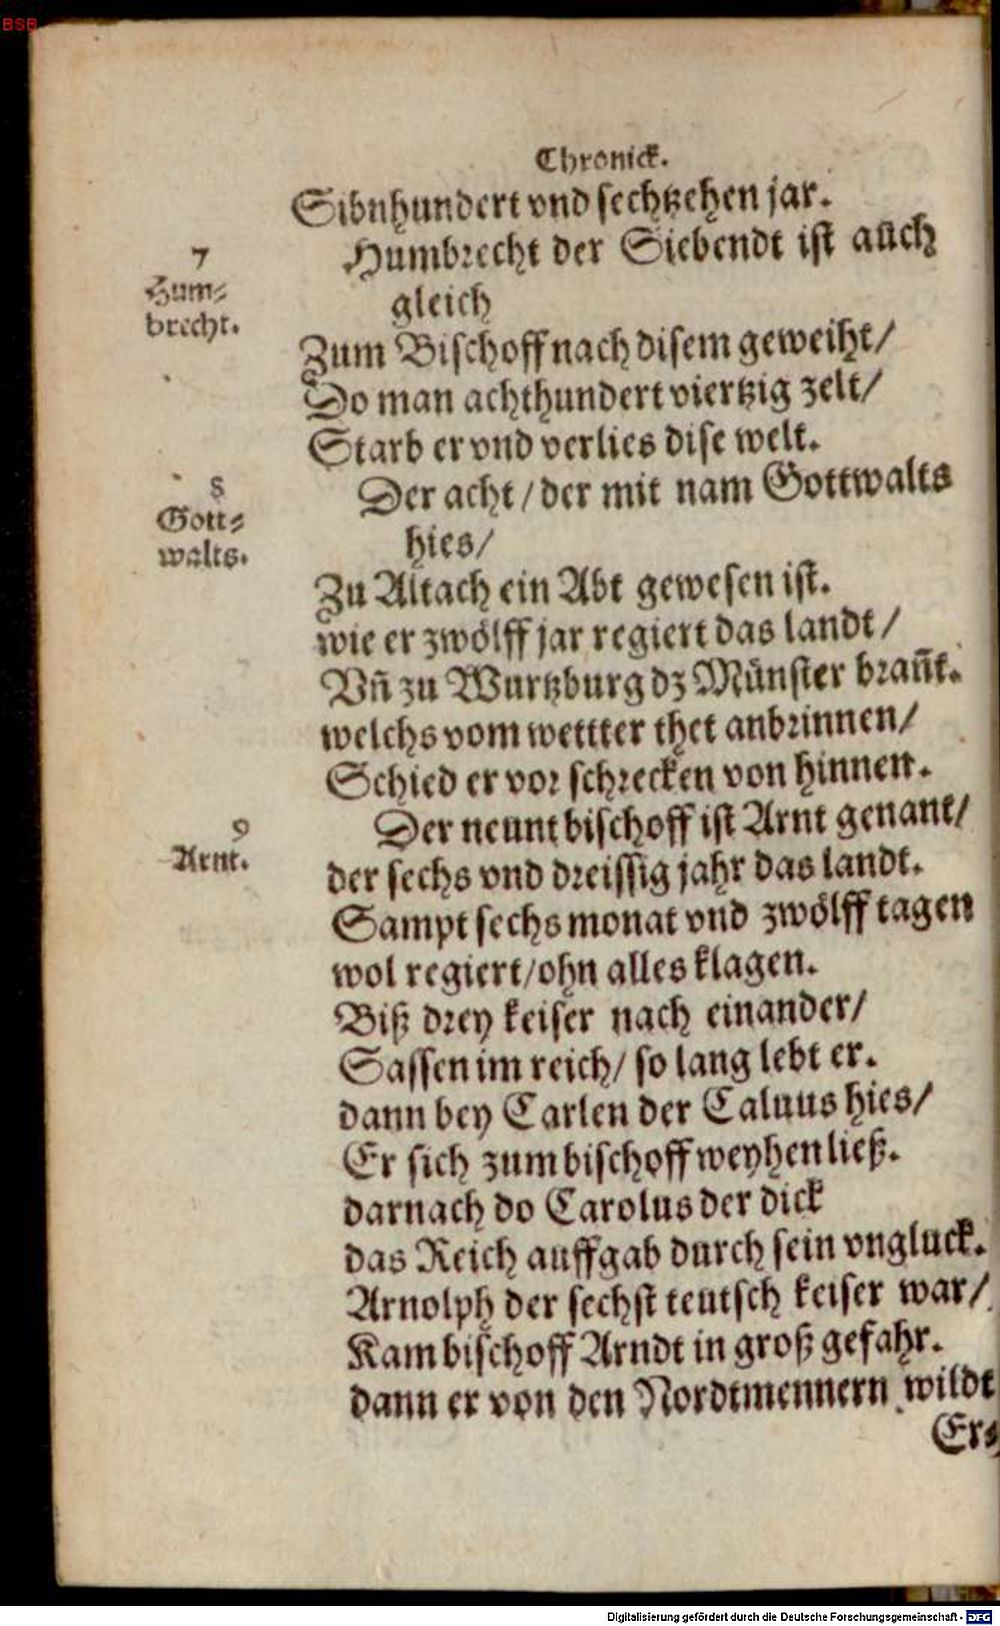 BSB
Chronick.
Sibnhundert vnd sechtzehen jar.
Humbrecht der Siebendt ist auch
gleich
7
Hum=
brecht.
Zum Bischoff nach disem geweiht/
Do man achthundert viertzig zelt/
Starb er vnd verlies dise welt.
Der acht/ der mit nam Gottwalts
hies/
8
Gott=
walts.
Zu Altach ein Abt gewesen ist.
wie er zwölff jar regiert das landt/
Vñ zu Wurtzburg dz Münster brañt.
welchs vom wettter thet anbrinnen/
Schied er vor schrecken von hinnen.
Der neunt bischoff ist Arnt genant/
9
Arnt.
der sechs vnd dreissig jahr das landt.
Sampt sechs monat vnd zwölff tagen
wol regiert/ohn alles klagen.
Biß drey keiser nach einander/
Sassen im reich/ so lang lebt er.
dann bey Carlen der Caluus hies/
Er sich zum bischoff weyhen ließ.
darnach do Carolus der dick
das Reich auffgab durch sein vngluck.
Arnolph der sechst teutsch keiser war/
Kam bischoff Arndt in groß gefahr.
dann er von den Nordtmennern wildt
Er=
Digitalisierung gefördert durch die Deutsche Forschungsgemeinschaft - DFG